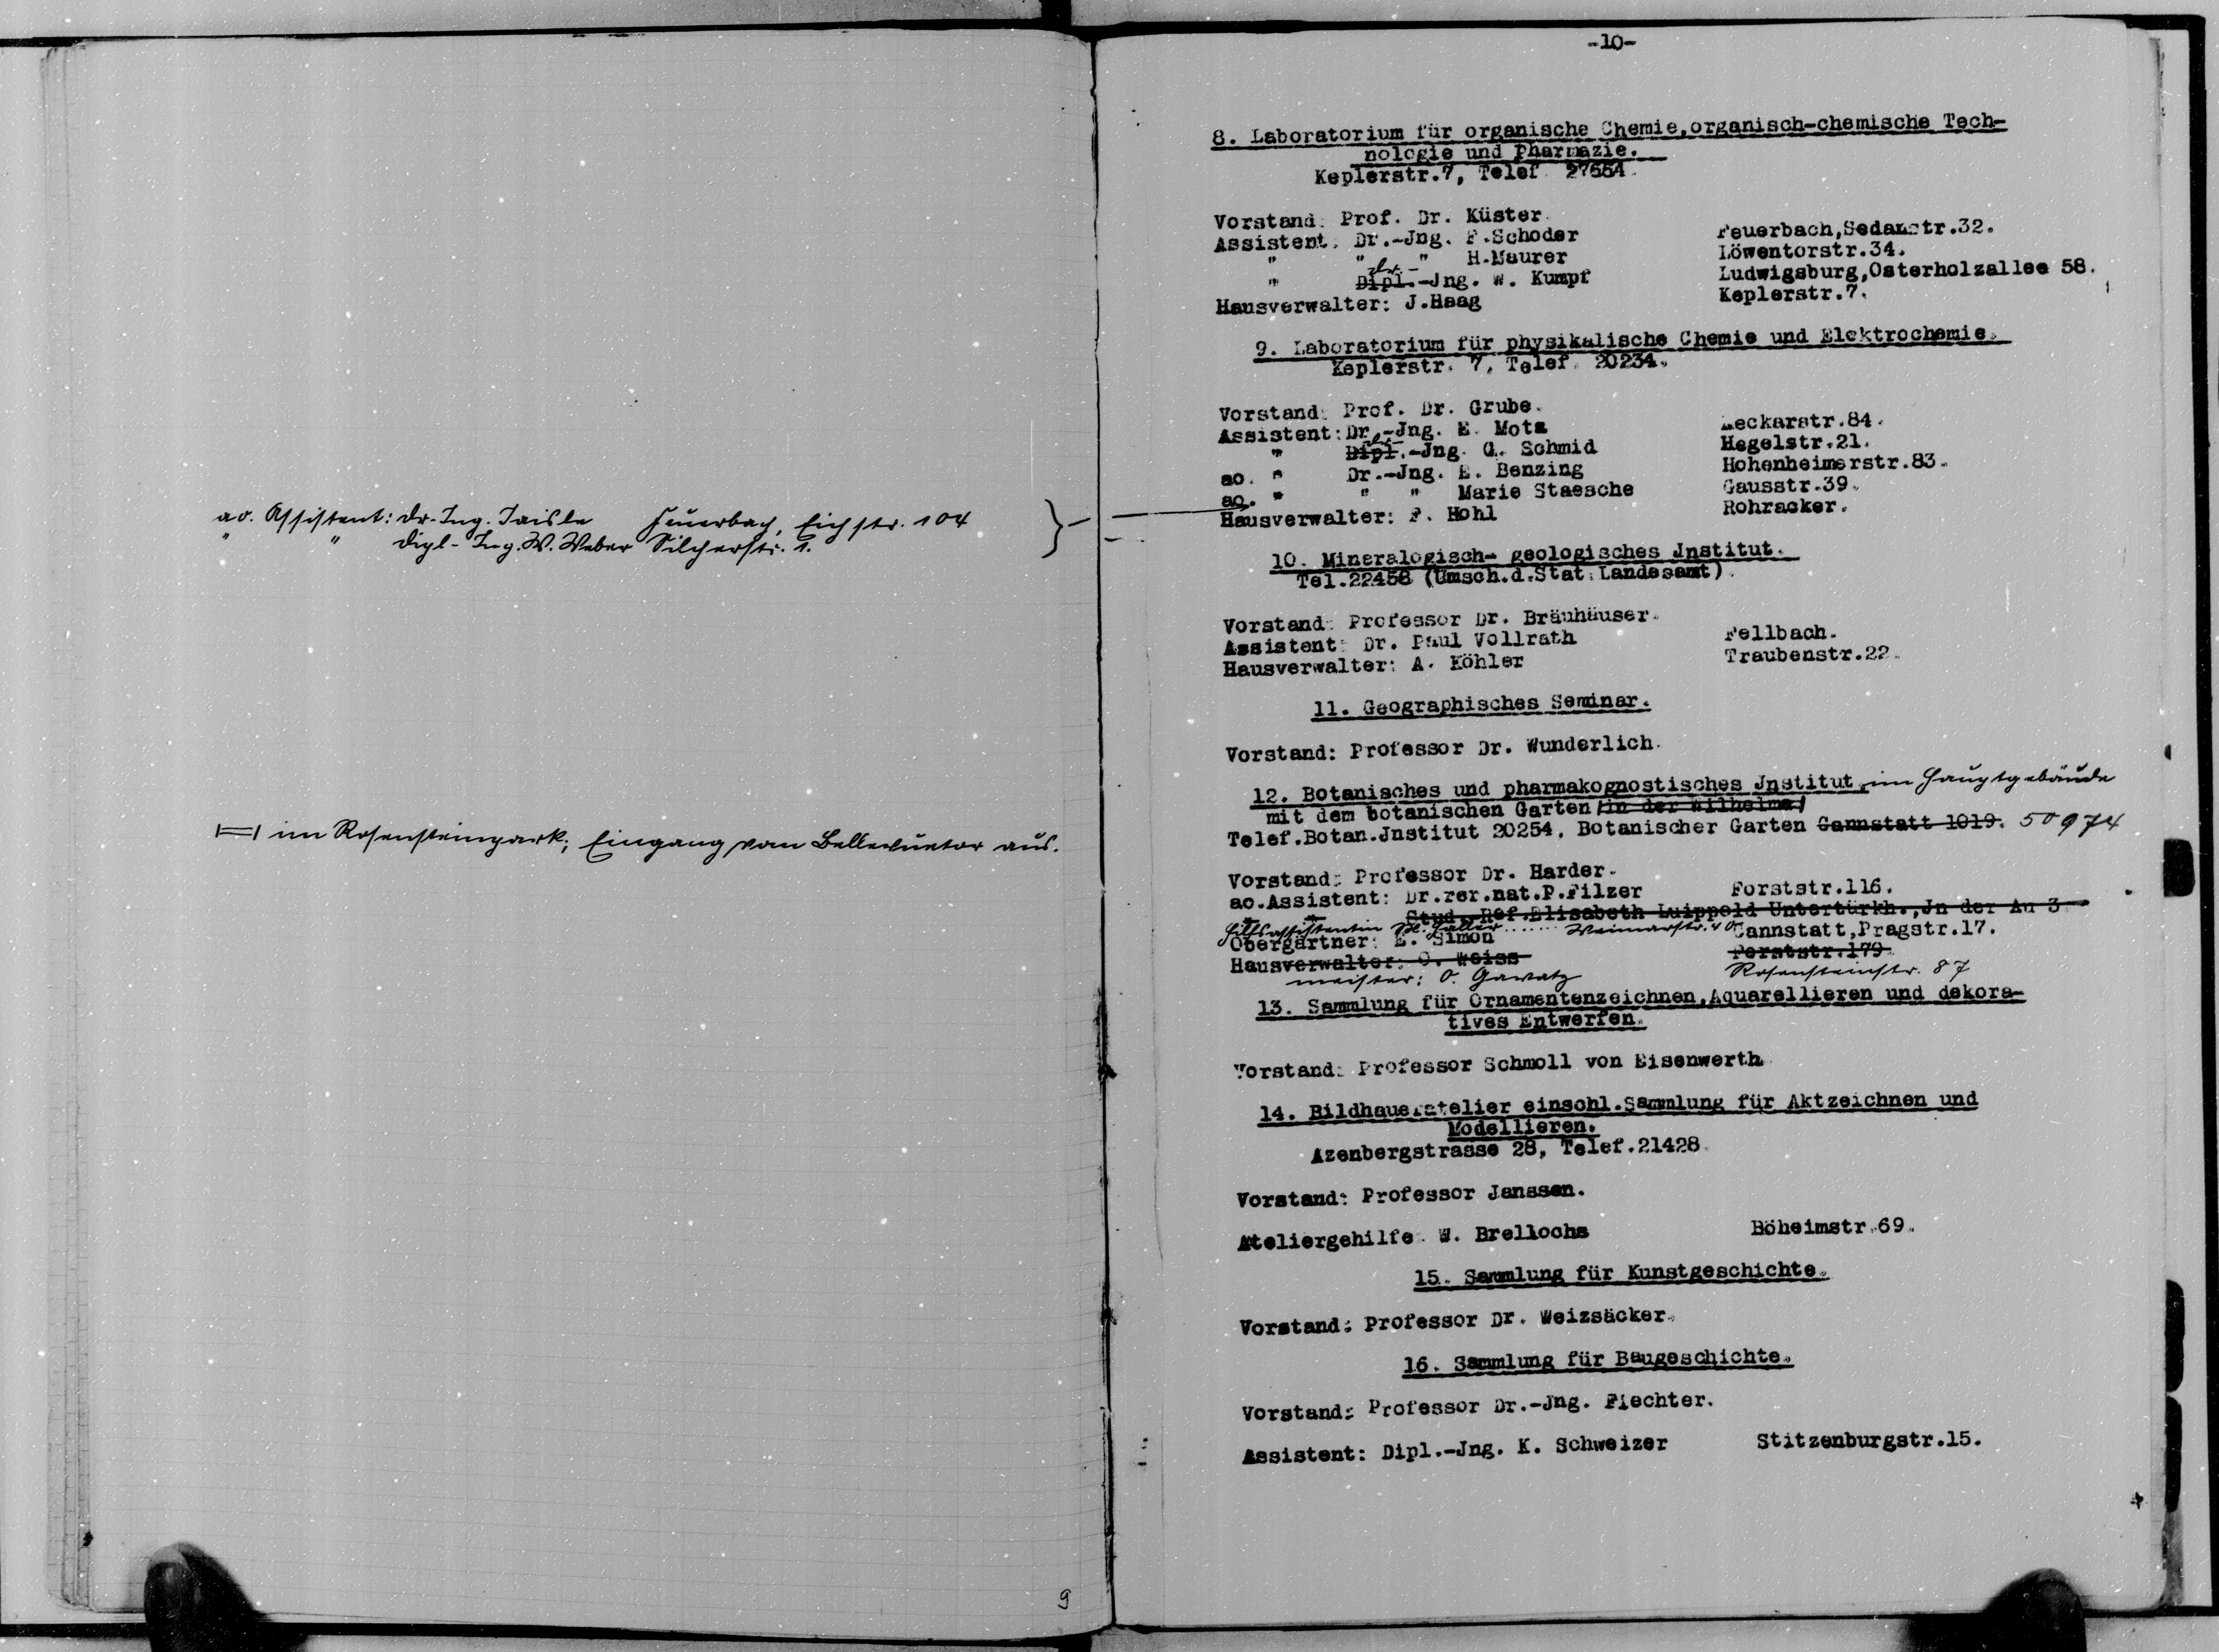 ao. Assistent: Dr.-Ing. Taisle Feuerbach, Eichstr. 104
" " Dipl-Ing. W. Weber Silcherstr. 1.
im Rosensteinpark; Eingang vom Bellevuetor aus.
9
-10-
8. Laboratorium für organische Chemie,organisch-chemische Tech-
nologie und Pharmazie.
Keplerstr.7, Telef. 27554.
Vorstand: Prof. Dr. Küster.
Assistent: Dr.-Jng. F.Schoder Feuerbach,Sedanstr.32.
" " " H.Maurer Löwentorstr.34.
" Dipl. Dr.-Jng. W. Kumpf Ludwigsburg,Osterholzallee 58.
Hausverwalter: J.Haag Keplerstr.7.
9. Laboratorium für physikalische Chemie und Elektrochemie.
Keplerstr. 7, Telef. 20234.
Vorstand: Prof. Dr. Grube.
Assistent: Dr.-Jng. E. Motz Neckarstr.84.
" Dipl. Dr.-Jng. G. Schmid Hegelstr.21.
ao. " Dr.-Jng. E. Benzing Hohenheimerstr.83.
ao. " " " Marie Staesche Gausstr.39.
Hausverwalter: F. Hohl Rohracker.
10. Mineralogisch- geologisches Jnstitut.
Tel.22458 (Umsch.d.Stat.Landesamt).
Vorstand: Professor Dr. Bräuhäuser.
Assistent: Dr. Paul Vollrath Fellbach.
Hausverwalter: A. Köhler Traubenstr.22.
11. Geographisches Seminar.
Vorstand: Professor Dr. Wunderlich.
12. Botanisches und pharmakognostisches Jnstitut, im Hauptgebäude
mit dem botanischen Garten (in der Wilhelma)
Telef.Botan.Jnstitut 20254, Botanischer Garten Cannstatt 1019. 50974
Vorstand: Professor Dr. Harder.
ao.Assistent: Dr.rer.nat.P.Filzer Forststr.116.
" " Stud.-Ref.Elisabeth Luippold Untertürkh.,Jn der Au 3
Hilfsassistentin Frl. Haller ....... Weimarstr. 40
Obergärtner: E. Simon Cannstatt,Pragstr.17.
Hausverwalter: O. Weiss Forststr.179.
meister: O. Gawatz Rosensteinstr. 87
13. Sammlung für Ornamentenzeichnen,Aquarellieren und dekora-
tives Entwerfen.
Vorstand: Professor Schmoll von Eisenwerth
14. Bildhaueratelier einschl.Sammlung für Aktzeichnen und
Modellieren.
Azenbergstrasse 28, Telef.21428.
Vorstand: Professor Janssen.
Ateliergehilfe: W. Brellochs Böheimstr.69.
15. Sammlung für Kunstgeschichte.
Vorstand: Professor Dr. Weizsäcker.
16. Sammlung für Baugeschichte.
Vorstand: Professor Dr.-Jng. Fiechter.
Assistent: Dipl.-Jng. K. Schweizer Stitzenburgstr.15.